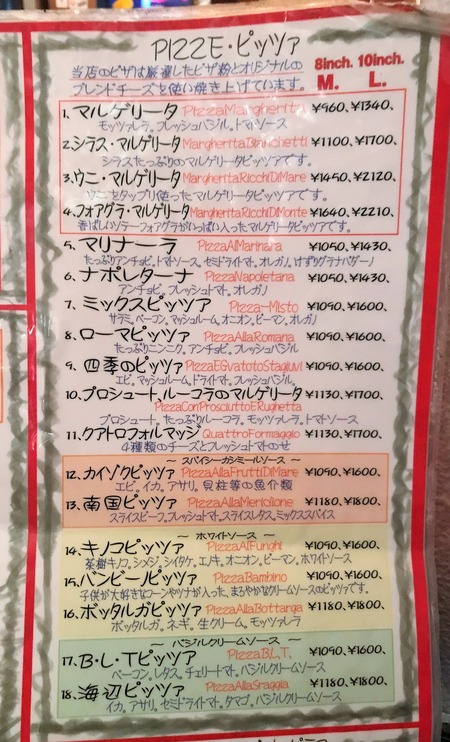 PIZZE・ピッツァ
当店のピザは厳選したピザ粉とオリジナルの
ブレンドチーズを使い焼き上げています。
8inch. 10inch.
M. L.
1. マルゲリータ PizzaMargherita ¥960、¥1340、
モッツァレラ。フレッシュバジル。トマトソース
2. シラス・マルゲリータ MargheritaBianchetti ¥1100、¥1700、
シラスたっぷりのマルゲリータピッツァです。
3. ウニ・マルゲリータ MargheritaRicchiDiMare ¥1450、¥2120、
ウニをタップリ使ったマルゲリータピッツァです。
4. フォアグラ・マルゲリータ MargheritaRicchiDiMonte ¥1640、¥2210、
香ばしいソテーフォアグラがいっぱい入ったマルゲリータピッツァです。
5. マリナーラ PizzaAlMarinara ¥1050、¥1430、
たっぷりアンチョビ。トマトソース。セミドライトマト。オレガノ。けずりグラナパダーノ
6. ナポレターナ PizzaNapoletana ¥1050、¥1430、
アンチョビ。フレッシュトマト。オレガノ
7. ミックスピッツァ Pizza-Misto ¥1090、¥1600、
サラミ。ベーコン。マッシュルーム。オニオン。ピーマン。オレガノ
8. ローマピッツァ PizzaAllaRomana ¥1090、¥1600、
たっぷりニンニク。アンチョビ。フレッシュバジル
9. 四季のピッツァ PizzaEGvatotoStagiuvi ¥1090、¥1600、
エビ。マッシュルーム。ドライトマト。フレッシュバジル。
10. プロシュート、ルーコラのマルゲリータ ¥1130、¥1700、
PizzaConProsciuttoERughetta
プロシュート。たっぷりルーコラ。モッツァレラ。トマトソース
11. クアトロフォルマッジ QuattroFormaggio ¥1130、¥1700、
4種類のチーズとフレッシュトマトのせ
～ スパイシーカシミールソース ～
12. カイゾクピッツァ PizzaAllaFruttiDiMare ¥1090、¥1600、
エビ。イカ。アサリ。貝柱等の魚介類
13. 南国ピッツァ PizzaAllaMeriglione ¥1180、¥1800、
スライスビーフ。フレッシュトマト。スライスレタス。ミックススパイス
～ ホワイトソース ～
14. キノコピッツァ PizzaAlFunghi ¥1090、¥1600、
茶樹キノコ。シメジ。シイタケ。エノキ。オニオン。ピーマン。ホワイトソース
15. バンビーノピッツァ PizzaBambino ¥1090、¥1600、
子供が大好きなコーンやツナが入った、まろやかなクリームソースのピッツァです。
16. ボッタルガピッツァ PizzaAllaBottarga ¥1180、¥1800、
ボッタルガ。ネギ。生クリーム。モッツァレラ
～ バジルクリームソース ～
17. B・L・Tピッツァ PizzaB.L.T. ¥1090、¥1600、
ベーコン。レタス。チェリートマト。バジルクリームソース
18. 海辺ピッツァ PizzaAllaSraggia ¥1180、¥1800、
イカ。アサリ。セミドライトマト。タマゴ。バジルクリームソース